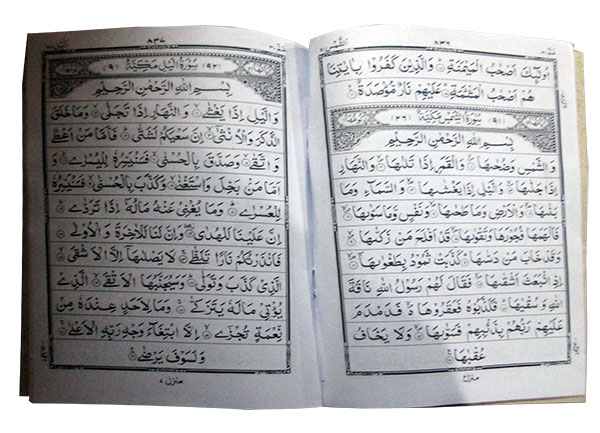 ٨٣٦
اُولٰٓئِكَ اَصْحٰبُ الْمَيْمَنَةِ وَالَّذِيْنَ كَفَرُوْا بِاٰيٰتِنَا
هُمْ اَصْحٰبُ الْمَشْئَمَةِ عَلَيْهِمْ نَارٌ مُّؤْصَدَةٌ
(٩١) سُوْرَةُ الشَّمْسِ مَكِّيَّةٌ (٢٦)
بِسْمِ اللّٰهِ الرَّحْمٰنِ الرَّحِيْمِ
وَالشَّمْسِ وَضُحٰىهَا وَالْقَمَرِ اِذَا تَلٰىهَا وَالنَّهَارِ
اِذَا جَلّٰىهَا وَالَّيْلِ اِذَا يَغْشٰىهَا وَالسَّمَآءِ وَمَا
بَنٰىهَا وَالْاَرْضِ وَمَا طَحٰىهَا وَنَفْسٍ وَّمَا سَوّٰىهَا
فَاَلْهَمَهَا فُجُوْرَهَا وَتَقْوٰىهَا قَدْ اَفْلَحَ مَنْ زَكّٰىهَا
وَقَدْ خَابَ مَنْ دَسّٰىهَا كَذَّبَتْ ثَمُوْدُ بِطَغْوٰىهَا
اِذِ انْۢبَعَثَ اَشْقٰىهَا فَقَالَ لَهُمْ رَسُوْلُ اللّٰهِ نَاقَةَ
اللّٰهِ وَسُقْيٰهَا فَكَذَّبُوْهُ فَعَقَرُوْهَا فَدَمْدَمَ
عَلَيْهِمْ رَبُّهُمْ بِذَنْۢبِهِمْ فَسَوّٰىهَا وَلَا يَخَافُ
عُقْبٰهَا
٨٣٧
(٩٢) سُوْرَةُ الَّيْلِ مَكِّيَّةٌ (٩)
بِسْمِ اللّٰهِ الرَّحْمٰنِ الرَّحِيْمِ
وَالَّيْلِ اِذَا يَغْشٰى وَالنَّهَارِ اِذَا تَجَلّٰى وَمَا خَلَقَ
الذَّكَرَ وَالْاُنْثٰى اِنَّ سَعْيَكُمْ لَشَتّٰى فَاَمَّا مَنْ اَعْطٰى
وَاتَّقٰى وَصَدَّقَ بِالْحُسْنٰى فَسَنُيَسِّرُهٗ لِلْيُسْرٰى وَ
اَمَّا مَنْۢ بَخِلَ وَاسْتَغْنٰى وَكَذَّبَ بِالْحُسْنٰى فَسَنُيَسِّرُهٗ
لِلْعُسْرٰى وَمَا يُغْنِيْ عَنْهُ مَالُهٗٓ اِذَا تَرَدّٰى
اِنَّ عَلَيْنَا لَلْهُدٰى وَاِنَّ لَنَا لَلْاٰخِرَةَ وَالْاُوْلٰى
فَاَنْذَرْتُكُمْ نَارًا تَلَظّٰى لَا يَصْلٰىهَآ اِلَّا الْاَشْقَى
الَّذِيْ كَذَّبَ وَتَوَلّٰى وَسَيُجَنَّبُهَا الْاَتْقَى الَّذِيْ
يُؤْتِيْ مَالَهٗ يَتَزَكّٰى وَمَا لِاَحَدٍ عِنْدَهٗ مِنْ
نِّعْمَةٍ تُجْزٰٓى اِلَّا ابْتِغَآءَ وَجْهِ رَبِّهِ الْاَعْلٰى
وَلَسَوْفَ يَرْضٰى
منزل ٧